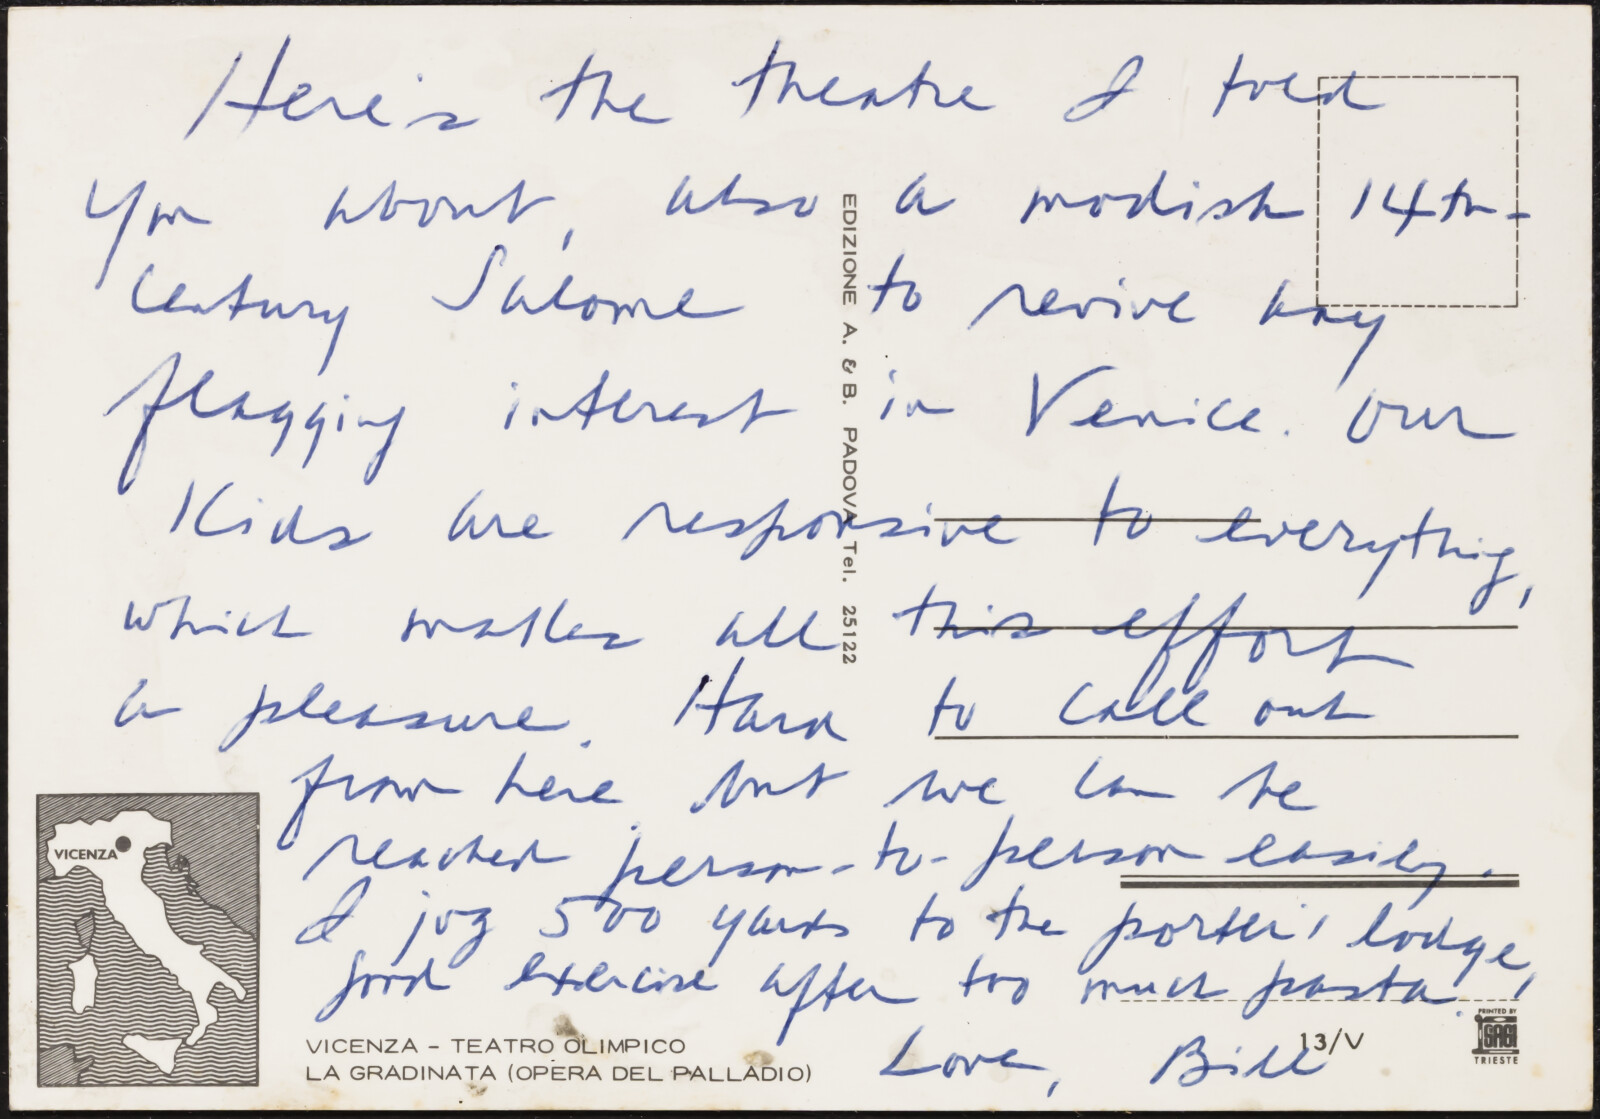 Here's the theatre I told
you about, also a modish 14th-
century Salome to revive any
flagging interest in Venice. Our
kids are responsive to everything,
which makes all this effort
a pleasure. Hard to call out
from here but we can be
reached person-to-person easily.
I jog 500 yards to the porter's lodge,
good exercise after too much pasta!
Love, Bill
EDIZIONE A. & B. PADOVA Tel. 25122
VICENZA
VICENZA - TEATRO OLIMPICO
LA GRADINATA (OPERA DEL PALLADIO)
13/V
PRINTED BY
SAGI
TRIESTE